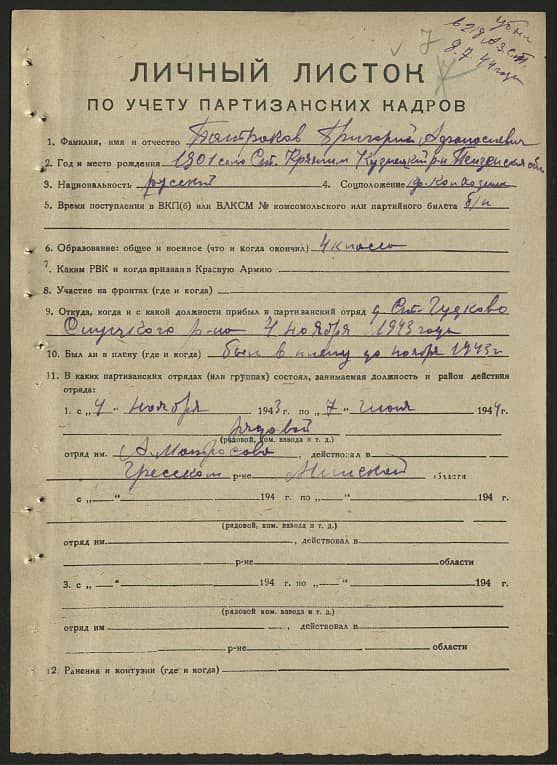 убыл
в 218 АЗСП
8.7.44 года
7
ЛИЧНЫЙ ЛИСТОК
ПО УЧЕТУ ПАРТИЗАНСКИХ КАДРОВ
1. Фамилия, имя и отчество Григорий Афанасиевич
2. Год и место рождения 1901 Кузнецкий р-н Пензенская обл
3. Национальность русский 4. Соцположение
5. Время поступления в ВКП(б) или ВЛКСМ № комсомольского или партийного билета б/п
6. Образование: общее и военное (что и когда окончил) 4 класса
7. Каким РВК и когда призван в Красную Армию
8. Участие на фронтах (где и когда)
9. Откуда, когда и с какой должности прибыл в партизанский отряд д. Гудково
Слуцкого р-на 4 ноября 1943 года
10. Был ли в плену (где и когда) был в плену до ноября 1943 г
11. В каких партизанских отрядах (или группах) состоял, занимаемая должность и район действия
отряда:
1. с „4" ноября 1943 г. по „7" июля 1944 г.
рядовой
(рядовой, ком. взвода и т. д.)
отряд им. А. Матросова, действовал в
Гресском р-не Минской области
с „ " 194 г. по „ " 194 г.
(рядовой, ком. взвода и т. д.)
отряд им. , действовал в
р-не области
3. с „ " 194 г. по „ " 194 г.
(рядовой, ком. взвода и т. д.)
отряд им , действовал в
р-не области
12. Ранения и контузии (где и когда)